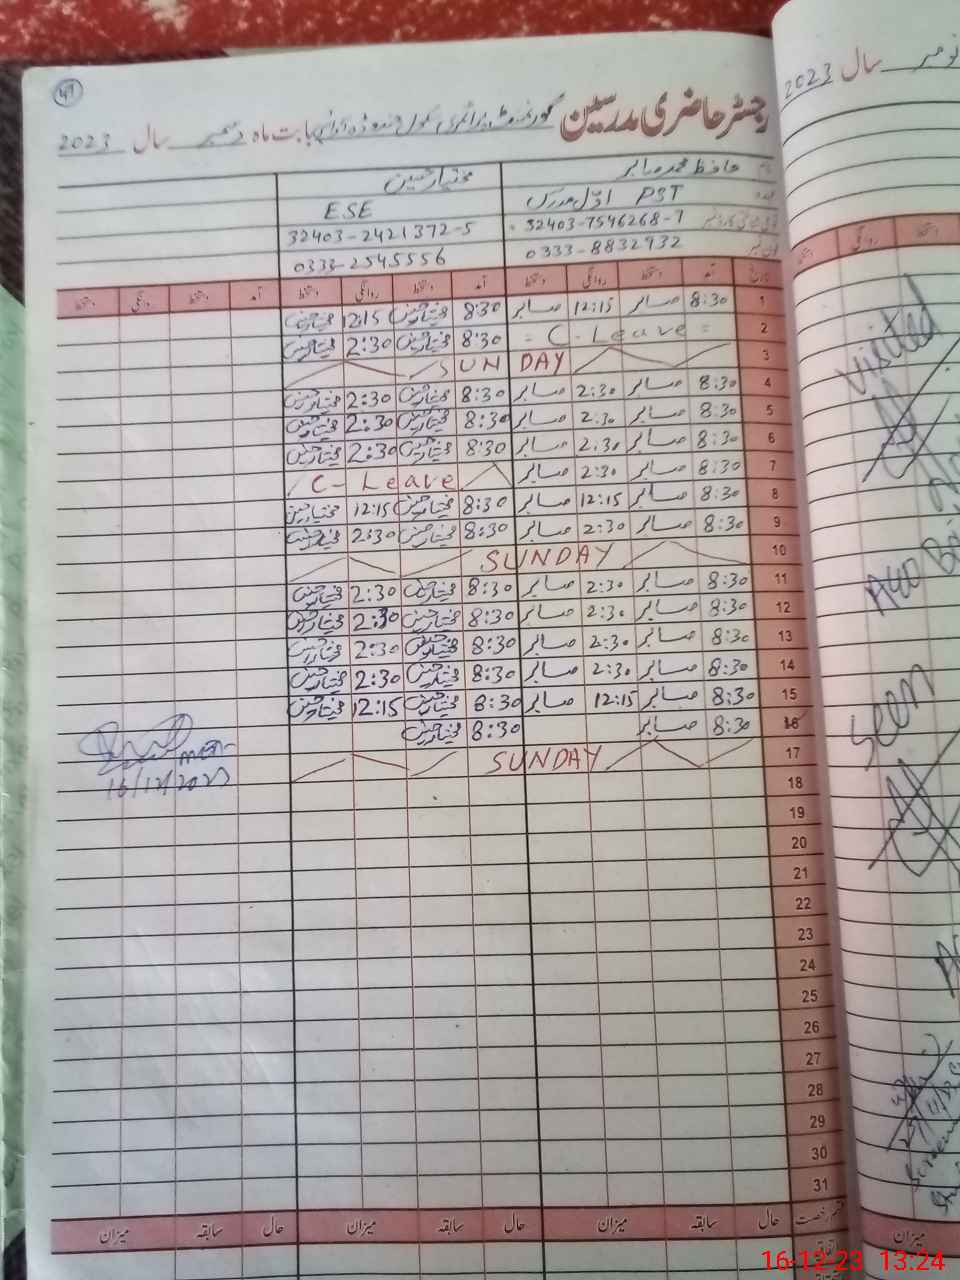 49
رجسٹر حاضری مدرسین گورنمنٹ پرائمری سکول بابت ماہ دسمبر سال 2023
نام حافظ محمد صابر مختیار حسین
عہدہ PST اوّل مدرس ESE
32403-7546268-7 32403-2421372-5
فون نمبر 0333-8832932 0333-2545556
تاریخ آمد دستخط روانگی دستخط آمد دستخط روانگی دستخط آمد دستخط روانگی دستخط
1 8:30 صابر 12:15 صابر 8:30 مختیار حسین 12:15 مختیار حسین
2 = C-Leave = 8:30 مختیار حسین 2:30 مختیار حسین
3 SUNDAY
4 8:30 صابر 2:30 صابر 8:30 مختیار حسین 2:30 مختیار حسین
5 8:30 صابر 2:30 صابر 8:30 مختیار حسین 2:30 مختیار حسین
6 8:30 صابر 2:30 صابر 8:30 مختیار حسین 2:30 مختیار حسین
7 8:30 صابر 2:30 صابر C-Leave
8 8:30 صابر 12:15 صابر 8:30 مختیار حسین 12:15 مختیار حسین
9 8:30 صابر 2:30 صابر 8:30 مختیار حسین 2:30 مختیار حسین
10 SUNDAY
11 8:30 صابر 2:30 صابر 8:30 مختیار حسین 2:30 مختیار حسین
12 8:30 صابر 2:30 صابر 8:30 مختیار حسین 2:30 مختیار حسین
13 8:30 صابر 2:30 صابر 8:30 مختیار حسین 2:30 مختیار حسین
14 8:30 صابر 2:30 صابر 8:30 مختیار حسین 2:30 مختیار حسین
15 8:30 صابر 12:15 صابر 8:30 مختیار حسین 12:15 مختیار حسین
16 8:30 صابر 8:30 مختیار حسین
17 SUNDAY
16/12/2023
18
19
20
21
22
23
24
25
26
27
28
29
30
31
قسم رخصت حال سابقہ میزان حال سابقہ میزان حال سابقہ میزان
اتفاقیہ
نومبر سال 2023
روانگی دستخط
Visited
Seen
میزان
16-12-23 13:24